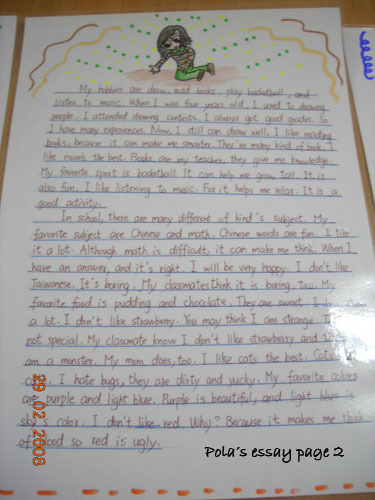 My hobbies are draw, read books, play basketball, and
listen to music. When I was four years old, I used to drawing
people. I attended drawing contests. I always got good grades. So
I have many experiences. Now, I still can draw well. I like reading
books, because it can make me smarter. They're many kind of book. I
like novels the best. Books are my teacher, they give me knowledge.
My favorite sport is basketball. It can help me grow tall. It is
also fun. I like listening to music. For it helps me relax. It is a
good activity.
In school, there are many different of kind's subject. My
favorite subject are Chinese and math. Chinese words are fun. I like
it a lot. Although math is difficult, it can make me think. When I
have an answer, and it's right. I will be very happy. I don't like
Taiwanese. It's boring. My classmates think it is boring, too. My
favorite food is pudding and chocolate. They are sweet. I
a lot. I don't like strawberry. You may think I am strange.
not special. My classmate know I don't like strawberry and
am a monster. My mom does, too. I like cats the best.
I hate bugs, they are dirty and yucky. My favorite colors
are purple and light blue. Purple is beautiful, and light blue is
sky's color. I don't like red. Why? Because it makes me think
of blood so red is ugly.
29 02 2008
Pola's essay page 2